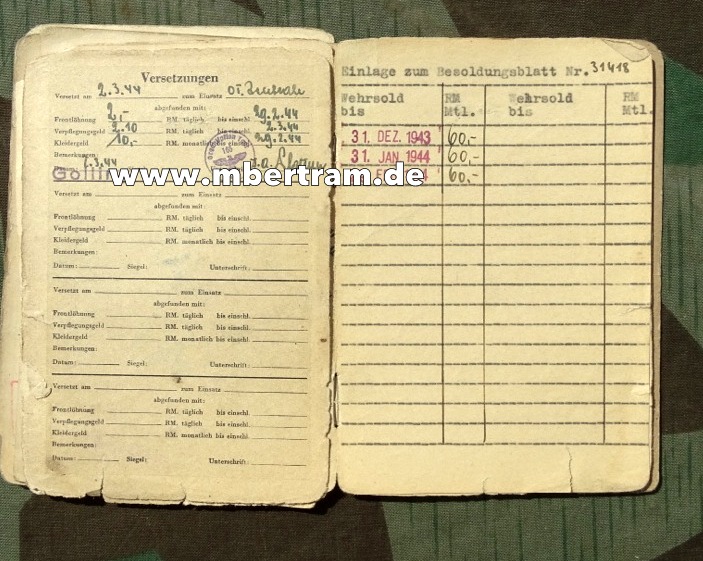 Versetzungen
Versetzt am 2.3.44 zum Einsatz OT.
abgefunden mit:
Frontlöhnung 2,- RM. täglich bis einschl. 29.2.44
Verpflegungsgeld 2.10 RM. täglich bis einschl. 2.3.44
Kleidergeld 10,- RM. monatlich bis einschl. 29.2.44
Bemerkungen:
2.3.44 i.A.
www.mbertram.de
Versetzt am zum Einsatz
abgefunden mit:
Frontlöhnung RM. täglich bis einschl.
Verpflegungsgeld RM. täglich bis einschl.
Kleidergeld RM. monatlich bis einschl.
Bemerkungen:
Datum: Siegel: Unterschrift:
Versetzt am zum Einsatz
abgefunden mit:
Frontlöhnung RM. täglich bis einschl.
Verpflegungsgeld RM. täglich bis einschl.
Kleidergeld RM. monatlich bis einschl.
Bemerkungen:
Datum: Siegel: Unterschrift:
Versetzt am zum Einsatz
abgefunden mit:
Frontlöhnung RM. täglich bis einschl.
Verpflegungsgeld RM. täglich bis einschl.
Kleidergeld RM. monatlich bis einschl.
Bemerkungen:
Datum: Siegel: Unterschrift:
Einlage zum Besoldungsblatt Nr. 31418
Wehrsold RM Wehrsold RM
bis Mtl. bis Mtl.
31. DEZ. 1943 60,-
31. JAN 1944 60,-
60,-